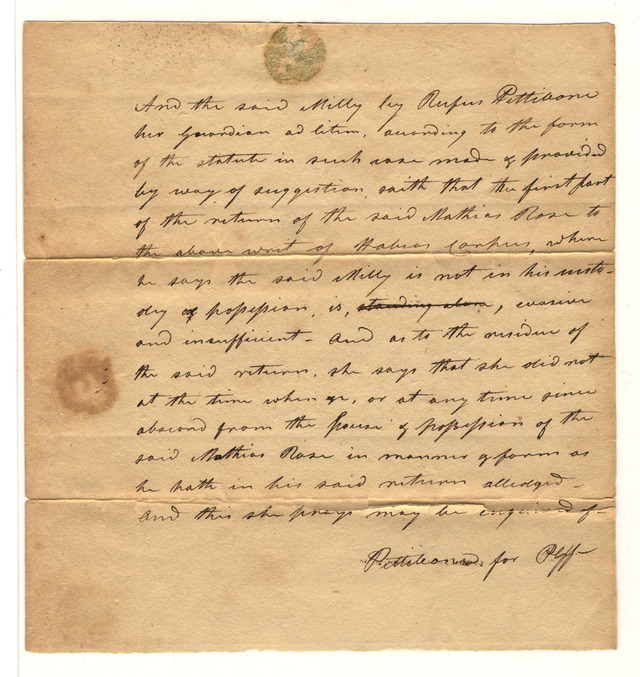 And the said Milly by Rufus Pettibone
her Guardian ad litem, according to the form
of the statute in such case made & provided
by way of suggestion, saith that the first part
of the return of the said Mathias Rose to
the above writ of Habeas Corpus, where
he says the said Milly is not in his custo-
dy or possession, is, standing alone, evasive
and insufficient - And as to the residue of
the said return, she says that she did not
at the time when &c, or at any time since
abscond from the house & possession of the
said Mathias Rose in manner & form as
he hath in his said return alledged -
And this she prays may be enquired of -
Pettibone, for Plff